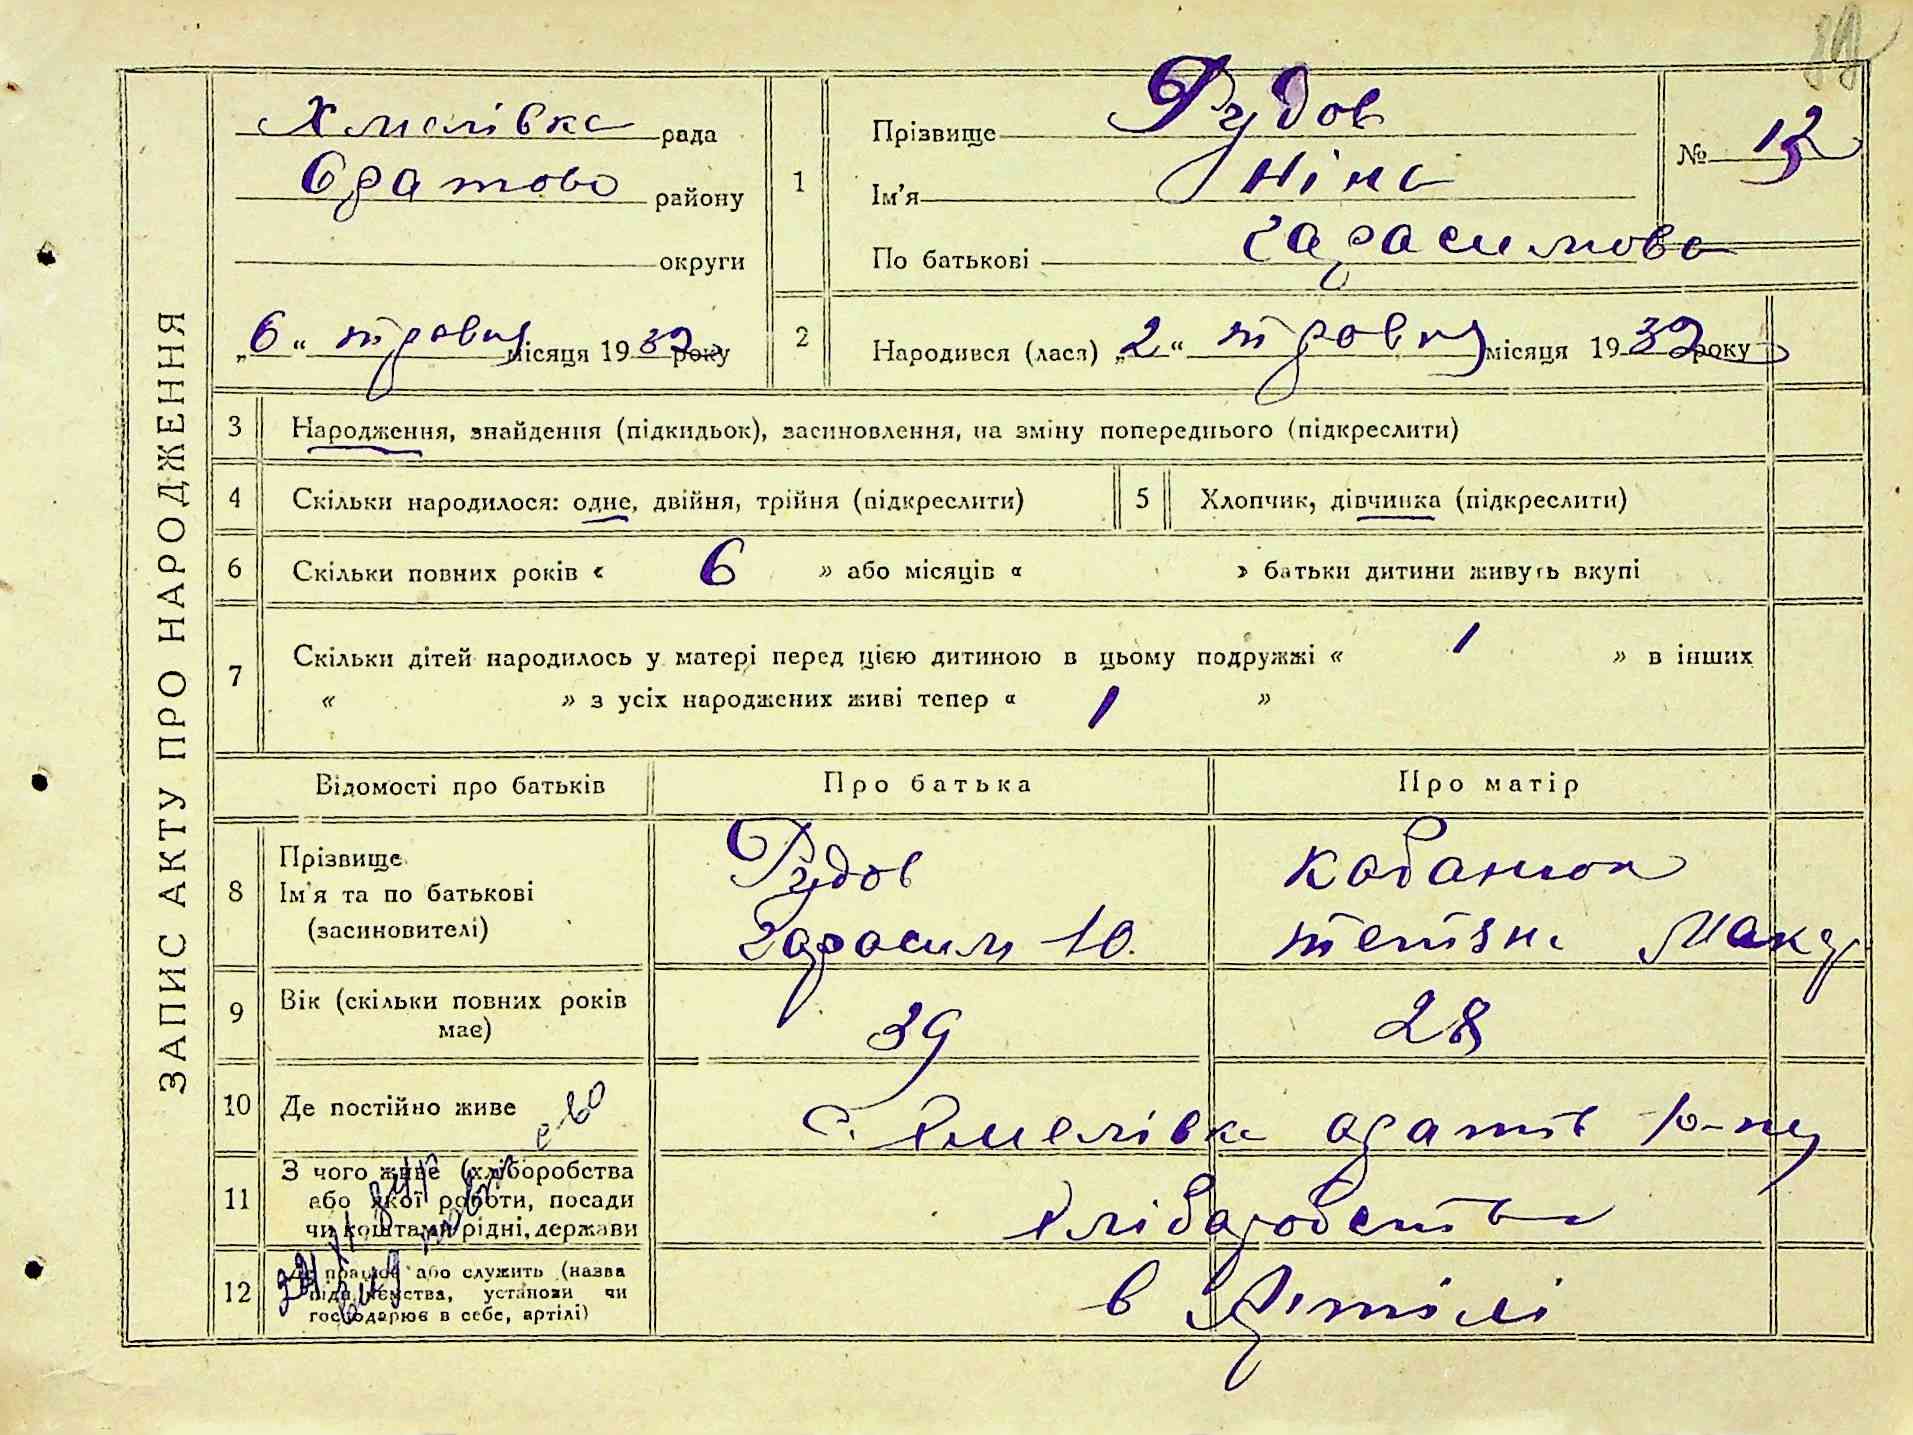 39
ЗАПИС АКТУ ПРО НАРОДЖЕННЯ
Хмелівка рада
Оратово району
округи
„6“ травня місяця 1932 року
1 Прізвище Рудов
Ім’я Ніна
По батькові Гарасимова
№ 13
2 Народився (лася) „2“ травня місяця 1932 року
3 Народження, знайдення (підкидьок), засиновлення, на зміну попереднього (підкреслити)
4 Скільки народилося: одне, двійня, трійня (підкреслити) 5 Хлопчик, дівчинка (підкреслити)
6 Скільки повних років « 6 » або місяців « » батьки дитини живуть вкупі
7 Скільки дітей народилось у матері перед цією дитиною в цьому подружжі « 1 » в інших
« » з усіх народжених живі тепер « 1 »
Відомості про батьків Про батька Про матір
8 Прізвище Ім’я та по батькові (засиновителі)
Рудов
Гарасим Ю.
Кабанюк
Тетяна Мака
9 Вік (скільки повних років має) 39 28
10 Де постійно живе с. Хмелівка Оратів р-ну
11 З чого живе (хліборобства або якої роботи, посади чи коштами рідні, держави хліборобства
12 Де працює або служить (назва підприємства, установи чи господарює в себе, артілі) в Артілі